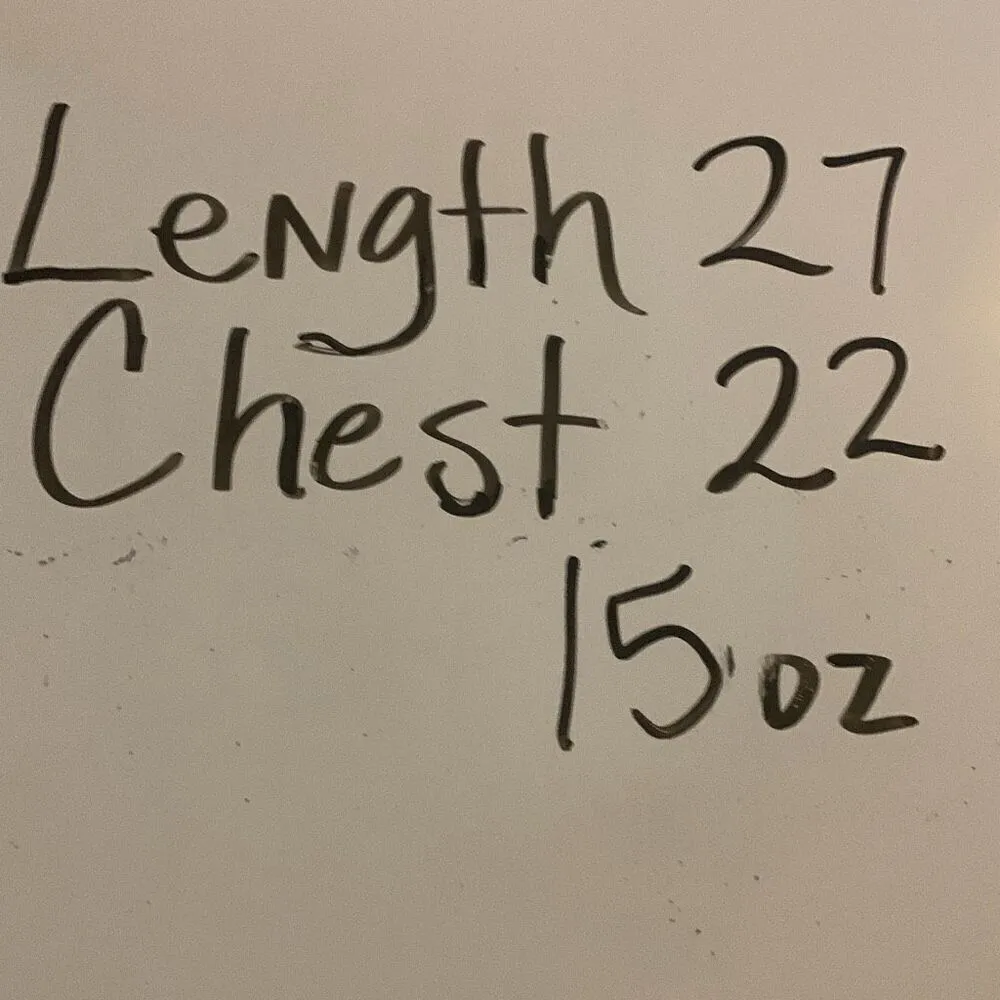 Length 27
Chest 22
15 oz